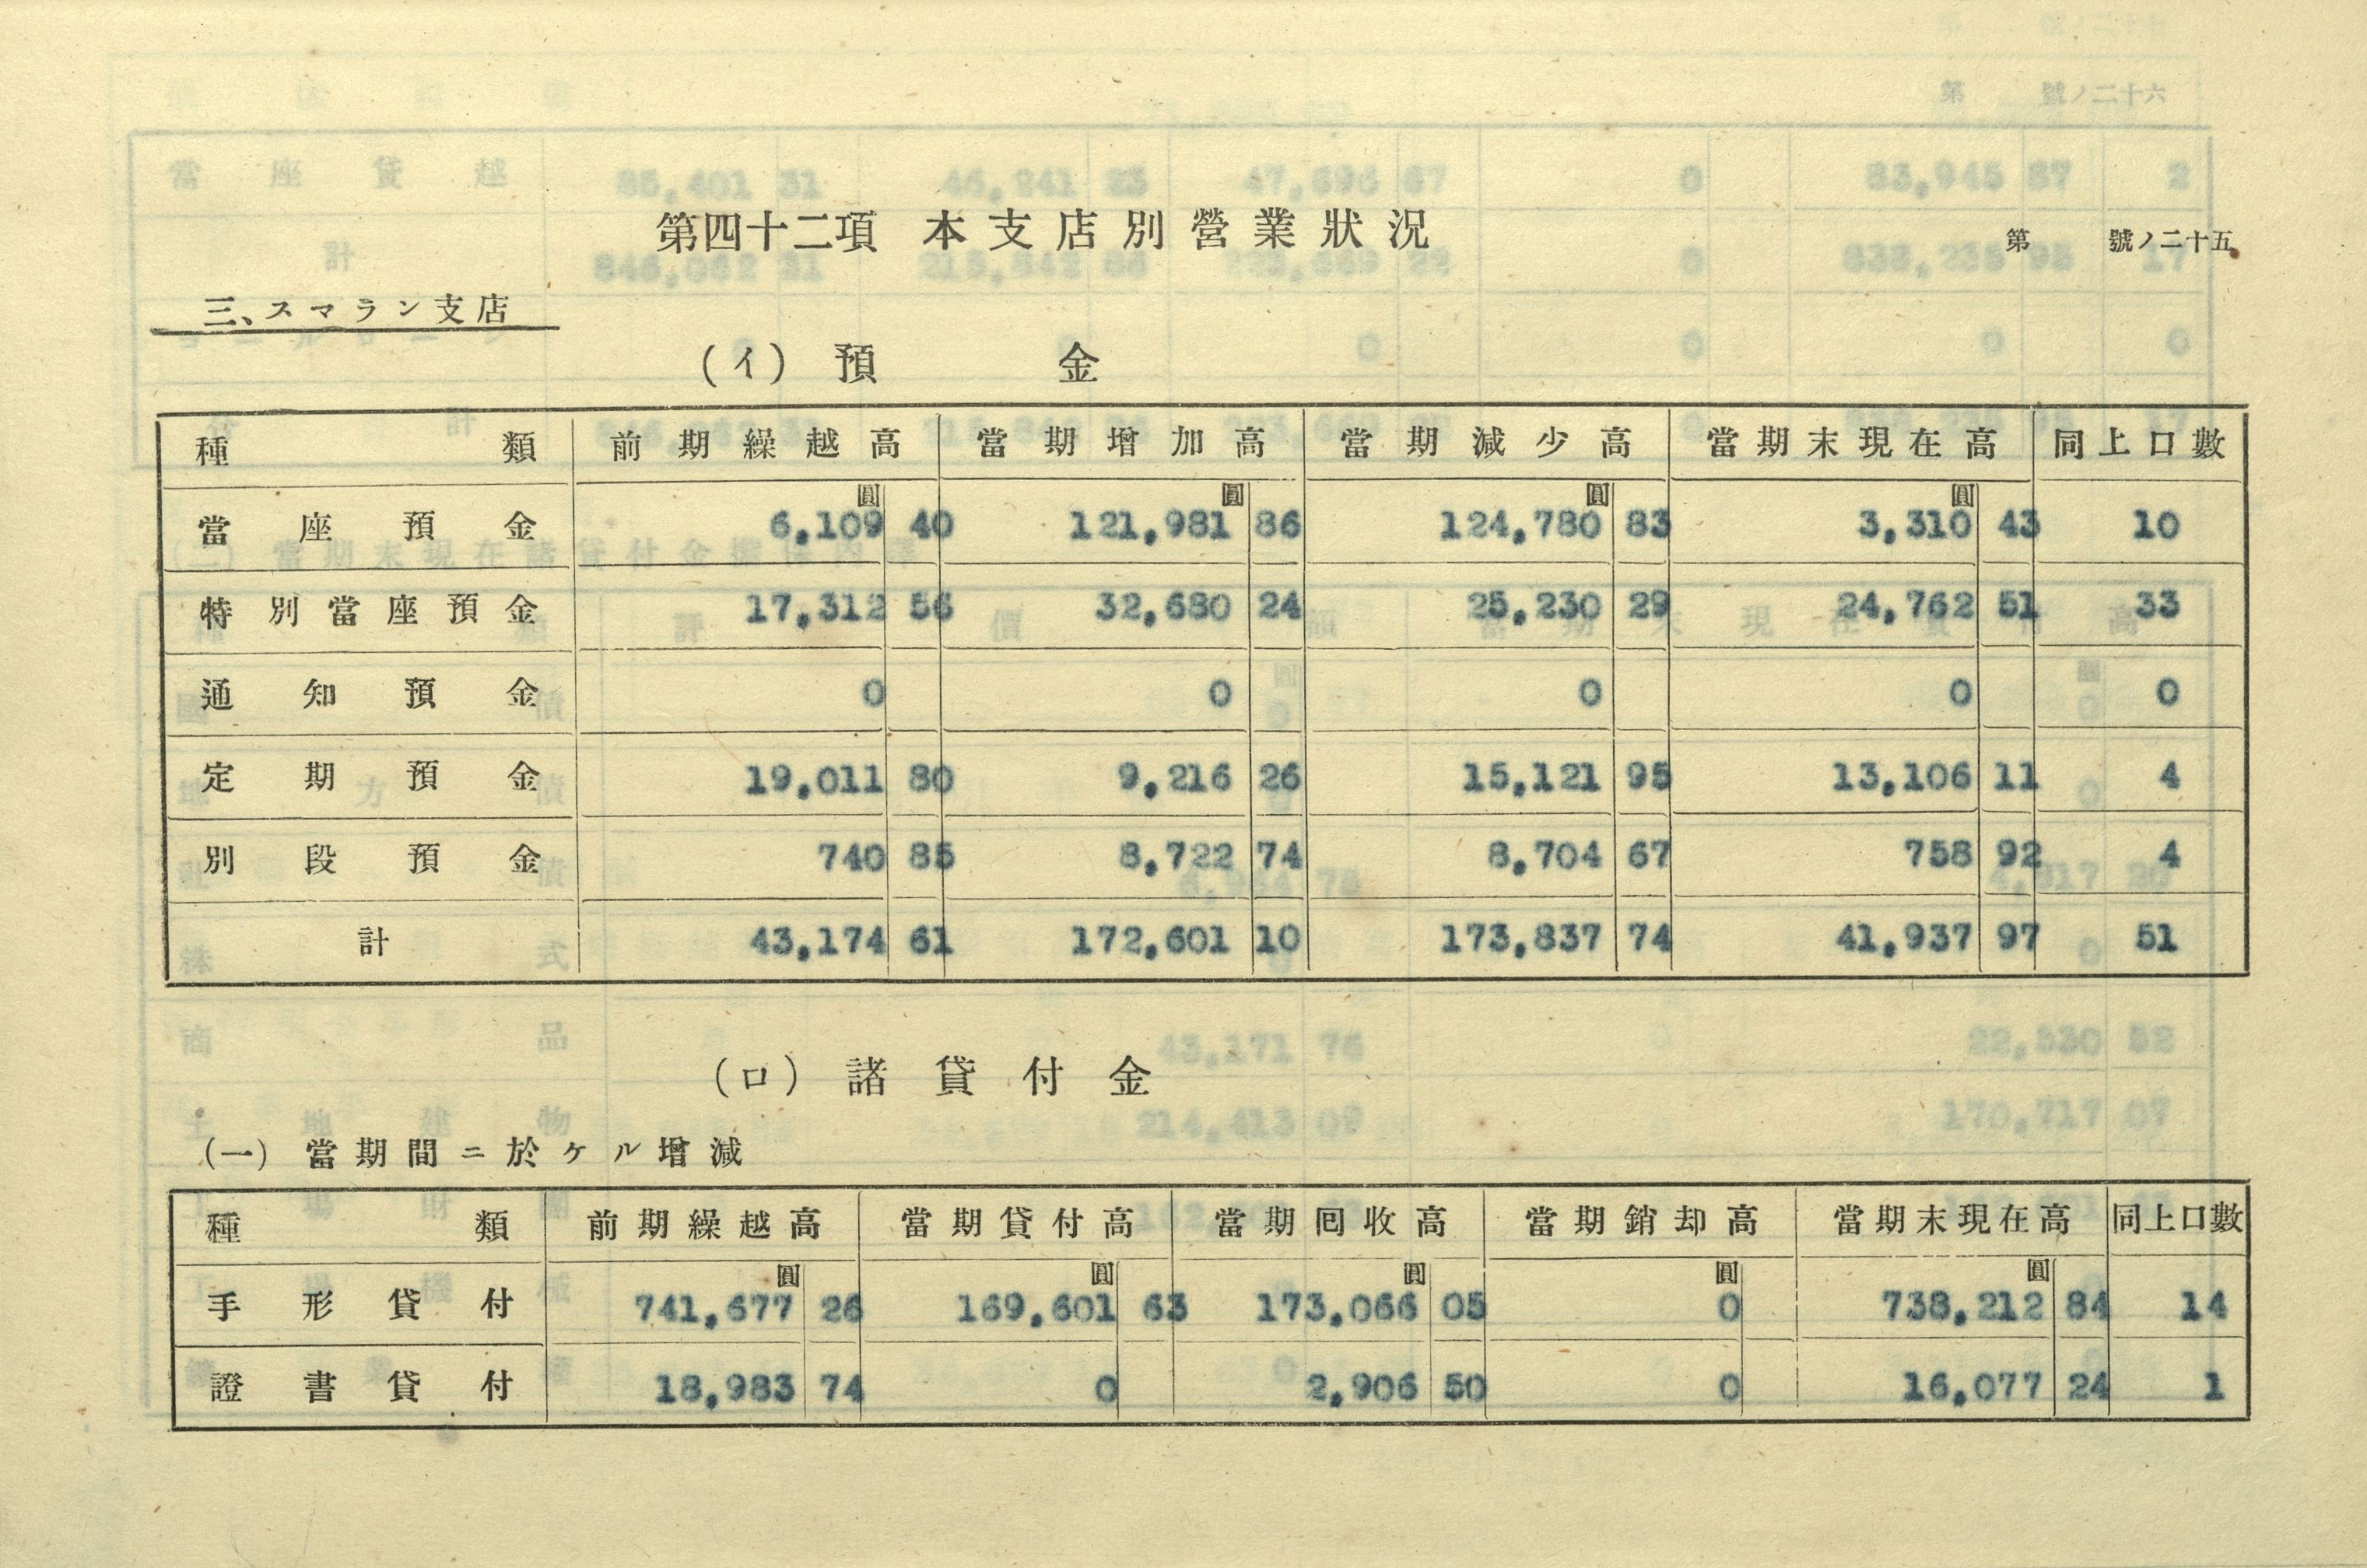 第四十二項 本支店別營業狀況
第 號ノ二十五
三、スマラン支店
(イ) 預 金
種類 前期繰越高 當期增加高 當期減少高 當期末現在高 同上口數
圓 圓 圓 圓
當座預金 6,109 40 121,981 86 124,780 83 3,310 43 10
特別當座預金 17,312 56 32,680 24 25,230 29 24,762 51 33
通知預金 0 0 0 0 0
定期預金 19,011 80 9,216 26 15,121 95 13,106 11 4
別段預金 740 85 8,722 74 8,704 67 758 92 4
計 43,174 61 172,601 10 173,837 74 41,937 97 51
(ロ) 諸貸付金
(一) 當期間ニ於ケル增減
種類 前期繰越高 當期貸付高 當期囘收高 當期銷却高 當期末現在高 同上口數
圓 圓 圓 圓 圓
手形貸付 741,677 26 169,601 63 173,066 05 0 738,212 84 14
證書貸付 18,983 74 0 2,906 50 0 16,077 24 1